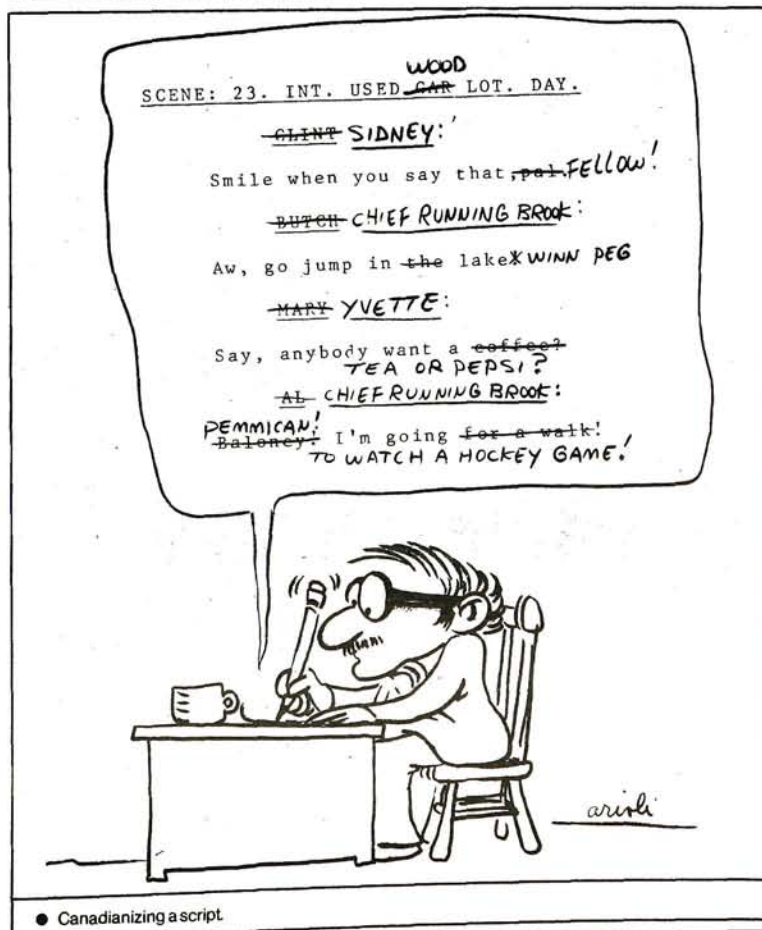 WOOD
SCENE: 23. INT. USED CAR LOT. DAY.
CLINT SIDNEY:
Smile when you say that, pal. FELLOW!
BUTCH CHIEF RUNNING BROOK:
Aw, go jump in the lake WINN PEG
MARY YVETTE:
Say, anybody want a coffee?
TEA OR PEPSI?
AL CHIEF RUNNING BROOK:
PEMMICAN!
Baloney! I'm going for a walk!
TO WATCH A HOCKEY GAME!
arioli
● Canadianizing a script.